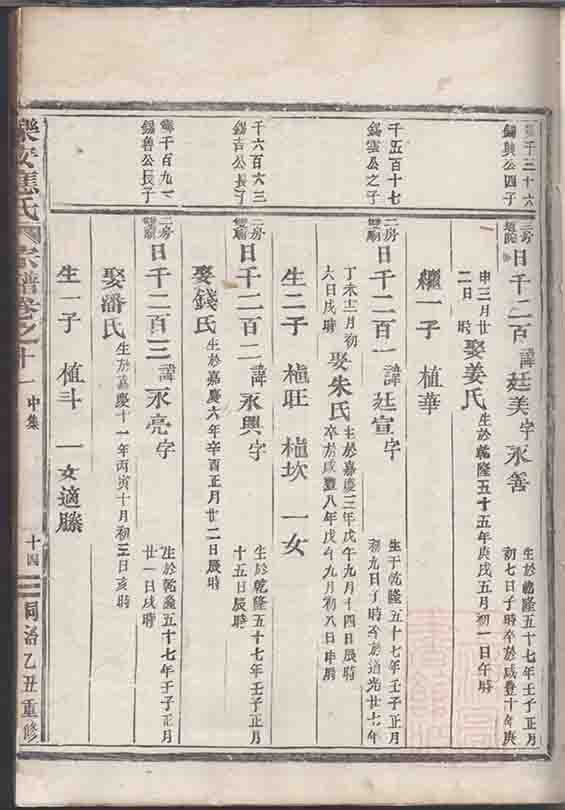 第千三十六
錫與公四子
三房
日千二百 諱廷美字永善
生於乾隆五十七年壬子正月
初七日子時卒於咸豐十年庚
申三月廿
二日 時
娶姜氏
生於乾隆五十五年庚戌五月初一日午時
繼一子 植華
千五百十七
錫雲公之子
二房
雙廟
日千二百一 諱廷宣字
生于乾隆五十七年壬子正月
初九日子時卒於道光廿七年
丁未十二月初
六日戌時
娶朱氏
生於嘉慶三年戊午九月十四日辰時
卒於咸豐八年戊午九月初八日申時
生二子 植旺 植坎 一女
千六百六三
錫吉公長子
二房
雙廟
日千二百二 諱永興字
生於乾隆五十七年壬子正月
十五日辰時
娶錢氏
生於嘉慶六年辛酉正月廿二日辰時
千百九
錫魯公長子
二房
雙廟
日千二百三 諱永亮字
生於乾隆五十七年壬子正月
廿一日戌時
娶潘氏
生於嘉慶十一年丙寅十月初三日亥時
生一子 植斗 一女適滕
樂安蔣氏宗譜卷之十一 中集
十四
同治乙丑重修